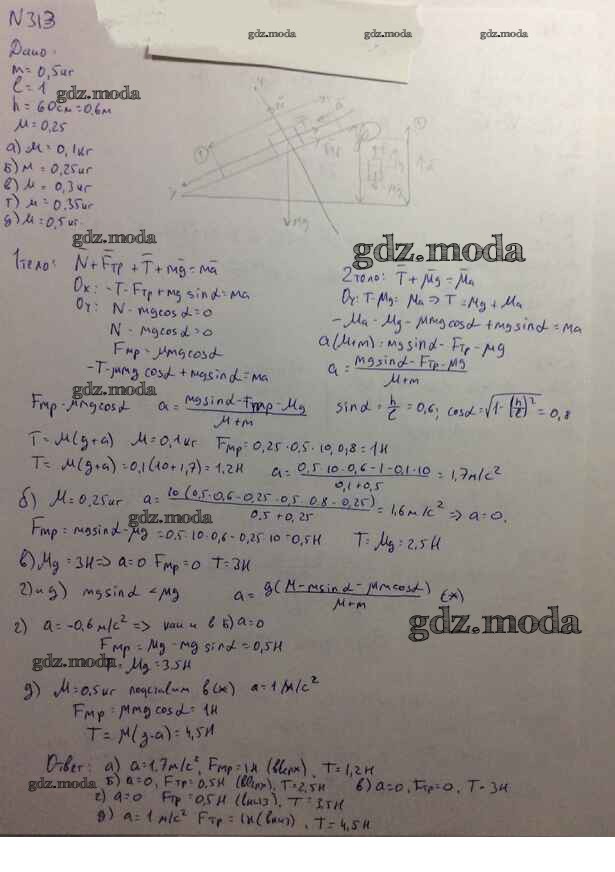 N313
gdz.moda gdz.moda
Дано:
m = 0,5 кг
ℓ = 1 gdz.moda
h = 60см = 0,6м
M = 0,25
а) M = 0,1 кг
б) M = 0,25 кг
в) M = 0,3 кг
г) M = 0,35 кг
д) M = 0,5 кг
Mg
gdz.moda
gdz.moda
1 тело: N̄ + F̄тр + T̄ + mḡ = mā
Ox: -T - Fтр + mg sinα = ma
Oy: N - mg cosα = 0
N - mg cosα = 0
Fтр = μmg cosα
-T - μmg cosα + mg sinα = ma
gdz.moda
2 тело: T̄ + M̄g = M̄a
Oy: T - Mg = Ma => T = Mg + Ma
-Ma - Mg - μmg cosα + mg sinα = ma
a(M+m) = mg sinα - Fтр - Mg
a = (mg sinα - Fтр - Mg)/(M+m)
Fтр = μmg cosα a = (mg sinα - Fтр - Mg)/(M+m) sinα = h/ℓ = 0,6; cosα = √(1-(h/ℓ)²) = 0,8
T = M(g+a) M = 0,1 кг Fтр = 0,25·0,5·10·0,8 = 1Н
T = M(g+a) = 0,1(10+1,7) = 1,2Н a = (0,5·10·0,6-1-0,1·10)/(0,1+0,5) = 1,7 м/с²
б) M = 0,25 кг a = 10(0,5·0,6-0,25·0,5·0,8-0,25)/(0,5+0,25) = 1,6 м/с² => a = 0.
gdz.moda
Fтр = mg sinα - Mg = 0,5·10·0,6 - 0,25·10 = 0,5Н T = Mg = 2,5Н
в) Mg = 3Н => a = 0 Fтр = 0 T = 3Н
г) и д) mg sinα < Mg a = g(M - m sinα - μm cosα)/(M+m) (*)
г) a = -0,6 м/с² => как и в б) a = 0
gdz.moda
Fтр = Mg - mg sinα = 0,5Н
gdz.moda
T = Mg = 3,5Н
д) M = 0,5 кг подставим в (*) a = 1 м/с²
Fтр = μmg cosα = 1Н
T = M(g-a) = 4,5Н
Ответ: а) a = 1,7 м/с², Fтр = 1Н (вверх), T = 1,2Н
gdz.moda
б) a = 0, Fтр = 0,5Н (вверх), T = 2,5Н в) a = 0, Fтр = 0, T = 3Н
г) a = 0 Fтр = 0,5Н (вниз), T = 3,5Н
д) a = 1 м/с² Fтр = 1Н (вниз), T = 4,5Н